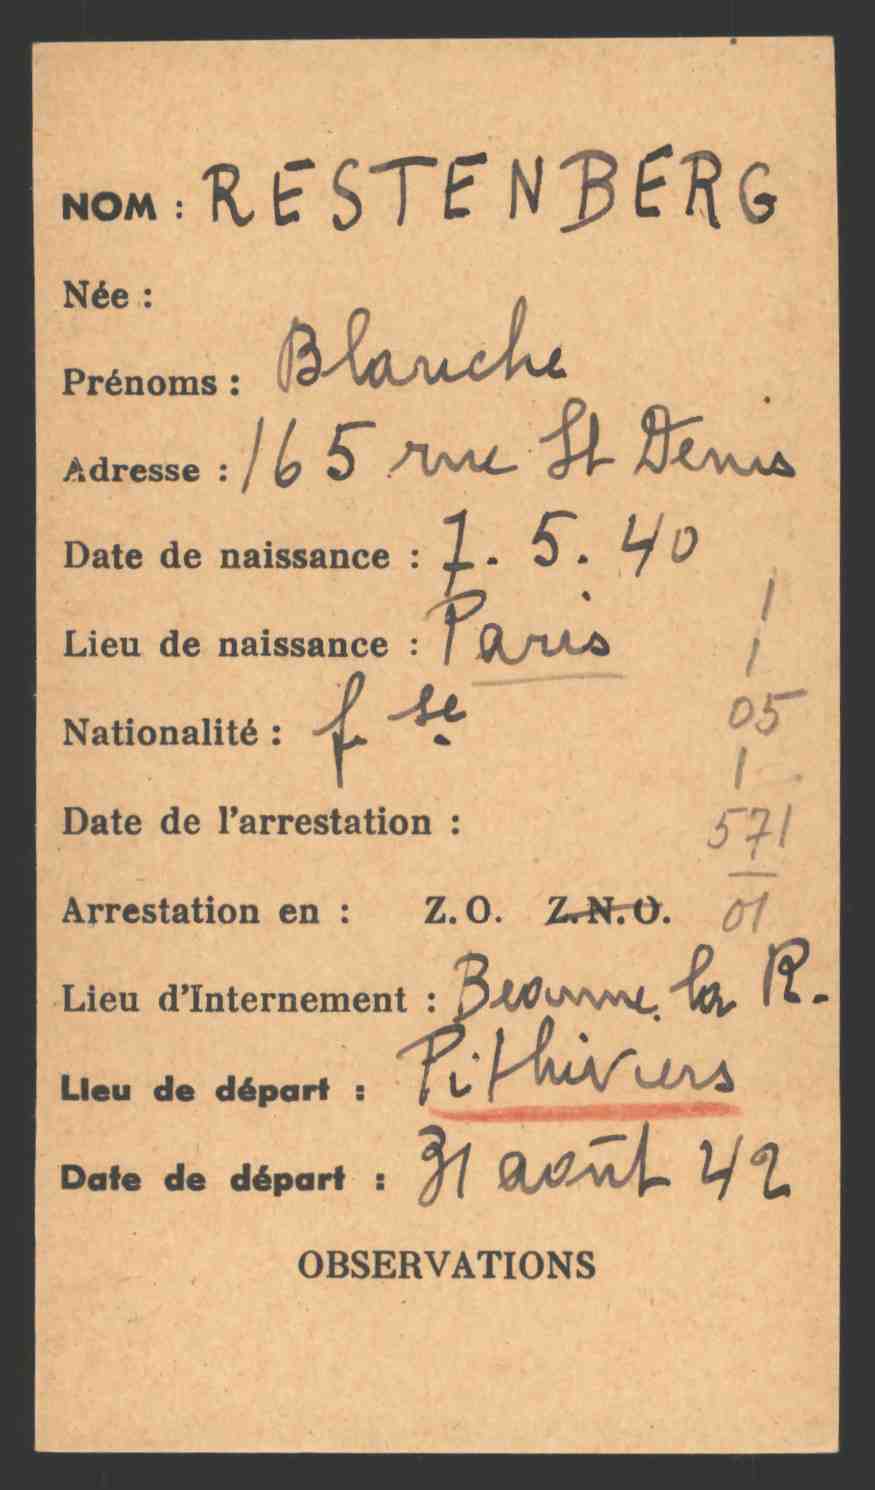 NOM : RESTENBERG
Née :
Prénoms : Blanche
Adresse : 165 rue St Denis
Date de naissance : 7. 5. 40
1
Lieu de naissance : Paris
1
Nationalité : f se
05
1
Date de l'arrestation :
571
Arrestation en : Z.O. Z.N.O.
01
Lieu d'Internement : Beaune la R.
Lieu de départ : Pithiviers
Date de départ : 31 août 42
OBSERVATIONS